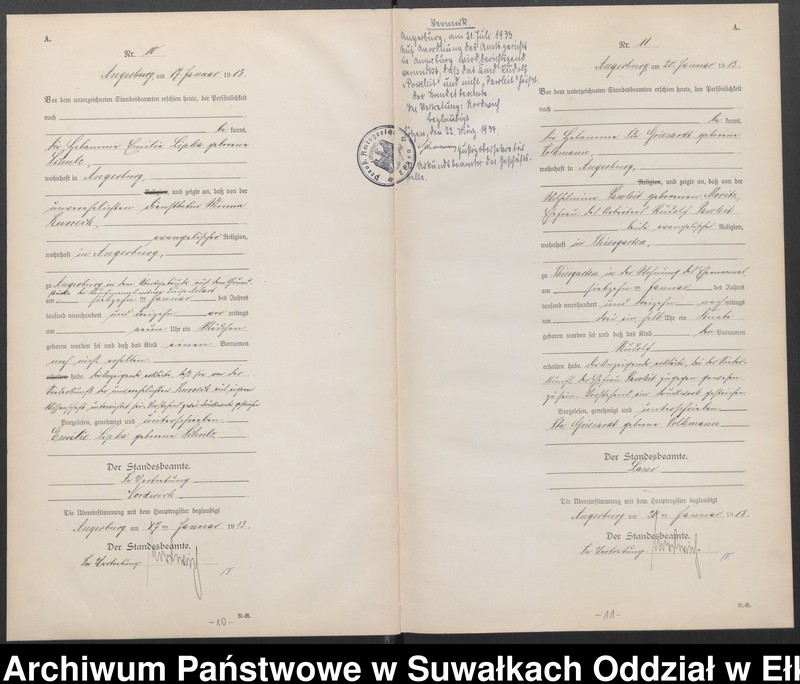 A.
Nr. 10
Angerburg am 17. Januar 1913.
Vor dem unterzeichneten Standesbeamten erschien heute, der Persönlichkeit
nach
be kannt,
die Hebamme Emilie Lipka geborene
Schulz,
wohnhaft in Angerburg,
Religion, und zeigte an, daß von der
unverehelichten Dienstboten Minna
evangelischer Religion,
wohnhaft in Angerburg,
zu Angerburg in dem
am siebzehn ten Januar des Jahres
tausend neunhundert und dreizehn vor mittags
um neun Uhr ein Mädchen
geboren worden sei und daß das Kind einen Vornamen
noch nicht erhalten
erhalten habe. Die Anzeigende erklärte, daß sie von der
Niederkunft der unverehelichten aus eigener
Wissenschaft unterrichtet sei. Vorstehend zwei Druckworte gestrichen
Vorgelesen, genehmigt und unterschrieben
Emilie Lipka geborene Schulz
Der Standesbeamte.
In Vertretung
Die Übereinstimmung mit dem Hauptregister beglaubigt
Angerburg am 17 ten Januar 1913.
Der Standesbeamte.
In Vertretung
N.-R.
-10-
Vermerk
Angerburg, am 21. Juli 1933
Auf Anordnung des Amtsgerichts
in Angerburg wird berichtigend
vermerkt, daß das Kind Rudolf
"Poweleit" und nicht "Pawleit" heißt.
Der Standesbeamte
In Vertretung:
Beglaubigt
Lötzen, den 22. März 1934
Justizobersekretär
Urkundsbeamter der Geschäfts-
stelle.
A.
Nr. 11
Angerburg am 20. Januar 1913.
Vor dem unterzeichneten Standesbeamten erschien heute, der Persönlichkeit
nach
be kannt,
die Hebamme Ida geborene
Volkmann,
wohnhaft in Angerburg,
Religion, und zeigte an, daß von der
Wilhelmine Pawleit geborenen Moritz,
Ehefrau des Arbeiters Rudolf Pawleit
beide evangelischer Religion,
wohnhaft in Thiergarten,
zu Thiergarten in der Wohnung des Ehemannes,
am siebzehn ten Januar des Jahres
tausend neunhundert und dreizehn nach mittags
um drei ein halb Uhr ein Knabe
geboren worden sei und daß das Kind den Vornamen
Rudolf
erhalten habe. Die Anzeigende erklärte, bei der Nieder-
kunft der Ehefrau Pawleit zugegen gewesen
zu sein. Vorstehend ein Druckwort gestrichen.
Vorgelesen, genehmigt und unterschrieben
Ida geborene Volkmann
Der Standesbeamte.
Die Übereinstimmung mit dem Hauptregister beglaubigt
Angerburg am 20 ten Januar 1913.
Der Standesbeamte.
In Vertretung
N.-R.
-11-
Archiwum Państwowe w Suwałkach Oddział w Ełk